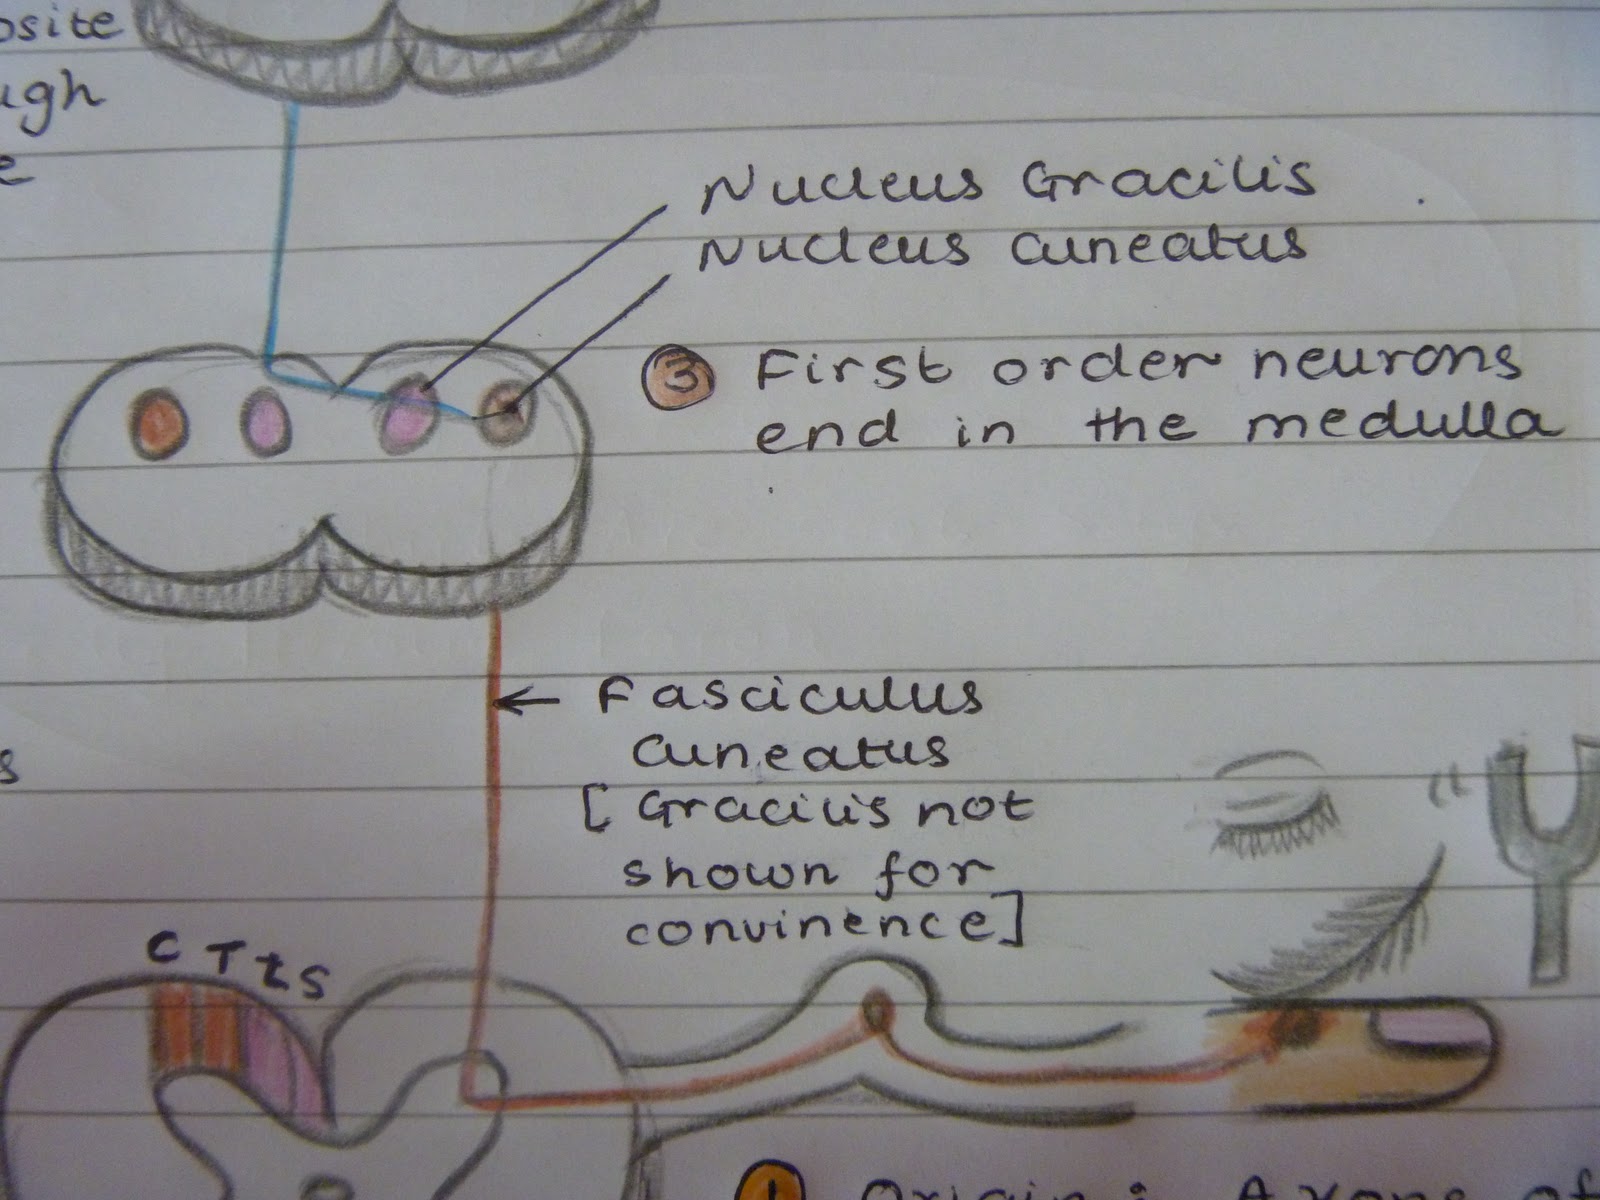 osite
ugh
e
Nucleus Gracilis
Nucleus Cuneatus
3 First order neurons
end in the medulla
Fasciculus
Cuneatus
[Gracilis not
shown for
convinence]
s
C T t s
1 Origin : Axons of